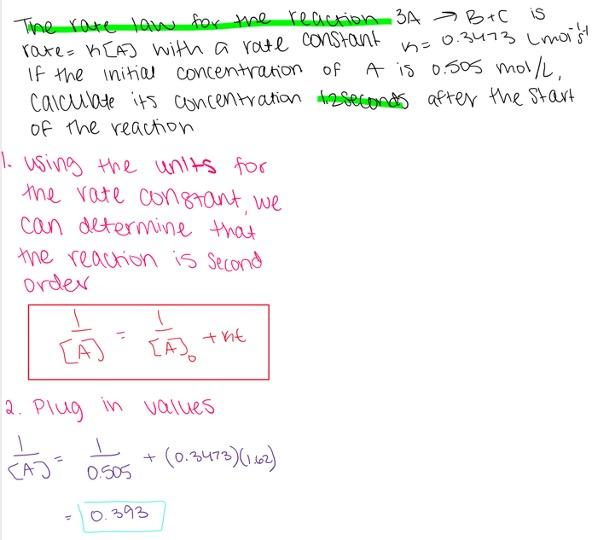 The rate law for the reaction 3A → B+C is
rate= k[A] with a rate constant k= 0.3473 Lmol⁻¹s⁻¹
If the initial concentration of A is 0.505 mol/L,
calculate its concentration 1.2seconds after the start
of the reaction
1. using the units for
the rate constant, we
can determine that
the reaction is second
order
1/[A] = 1/[A]₀ + kt
2. Plug in values
1/[A] = 1/0.505 + (0.3473)(1.62)
= 0.393